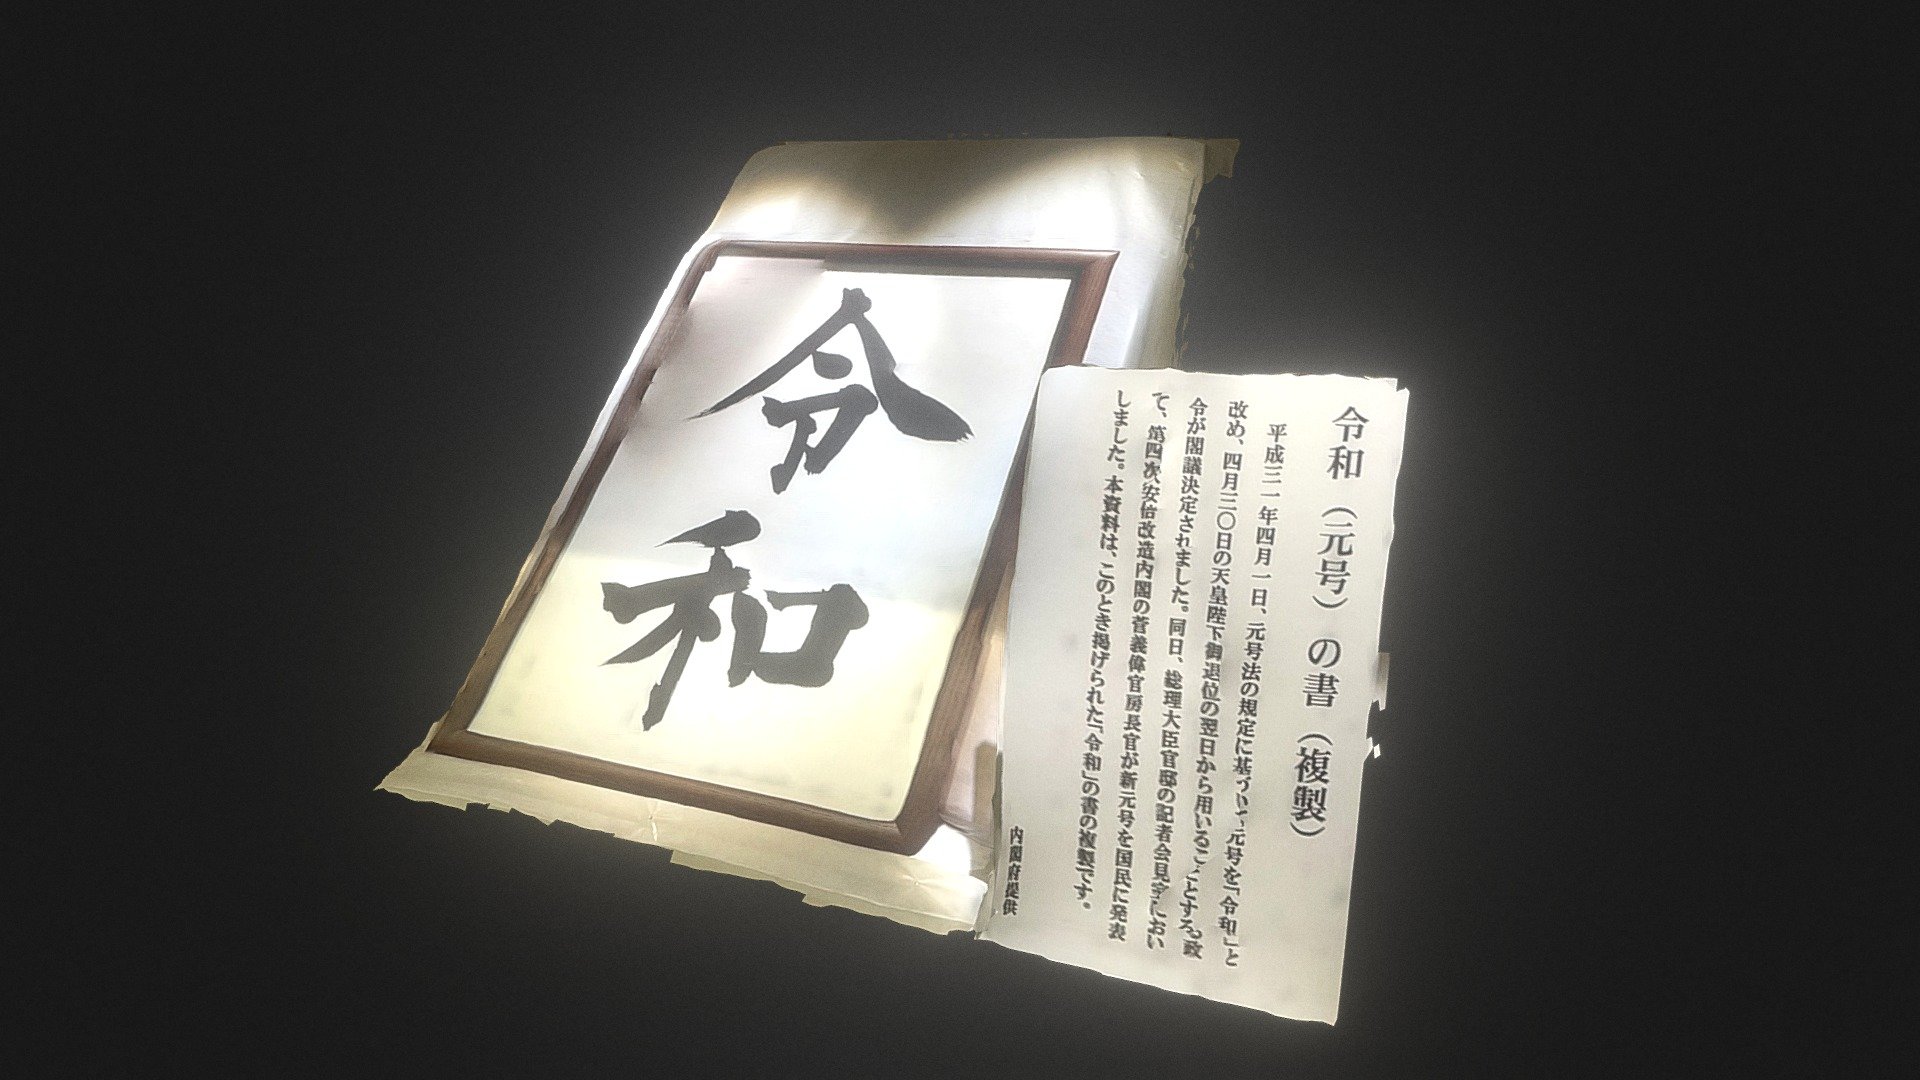 令
和
令和（元号）の書（複製）
平成三一年四月一日、元号法の規定に基づいて元号を「令和」と
改め、四月三〇日の天皇陛下御退位の翌日から用いることとする政
令が閣議決定されました。同日、総理大臣官邸の記者会見室におい
て、第四次安倍改造内閣の菅義偉官房長官が新元号を国民に発表
しました。本資料は、このとき掲げられた「令和」の書の複製です。
内閣府提供